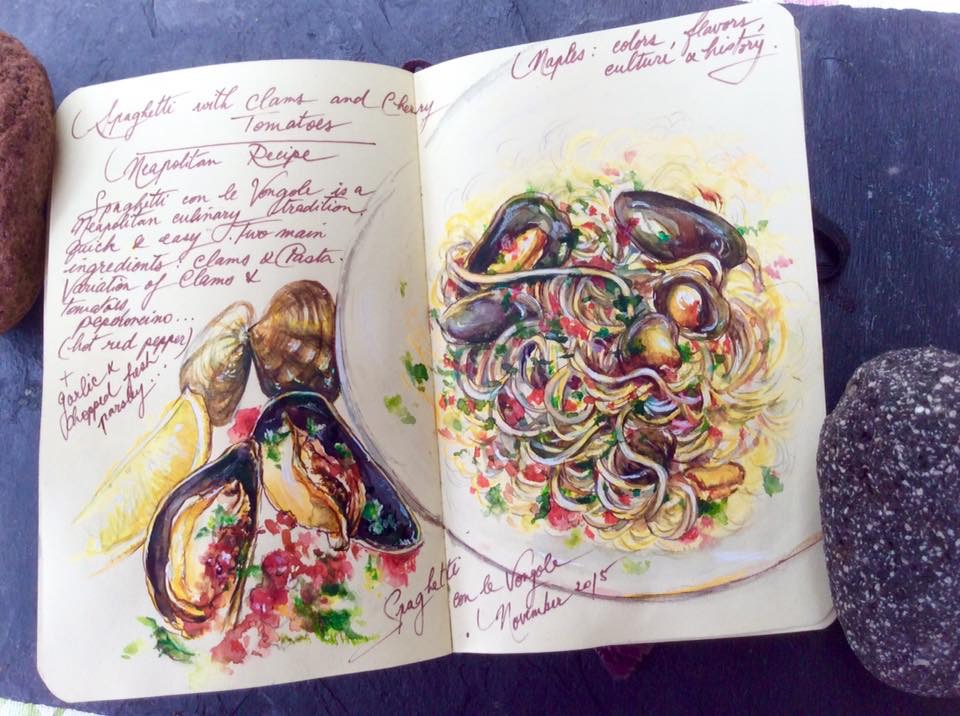 Spaghetti with Clams and Cherry
Tomatoes
Neapolitan Recipe
Spaghetti con le Vongole is a
Neapolitan culinary tradition.
Quick & easy. Two main
ingredients: Clams & Pasta.
Variation of Clams &
tomatoes,
peperoncino...
(hot red pepper)
+
garlic &
chopped fresh
parsley...
Naples: colors, flavors,
culture & history.
Spaghetti con le Vongole
November 2015